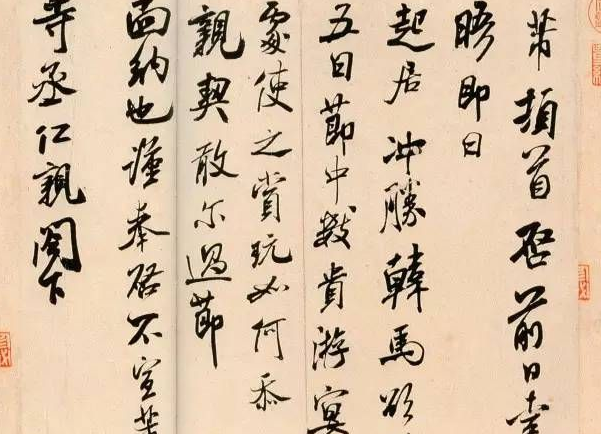 芾頓首启前日幸
晤即日
起居冲勝韓馬欲
五日節中数貴游冥
處使之賞玩如何忝
親契敢尔過節
面納也謹奉启不宣芾
寺丞仁親閣下